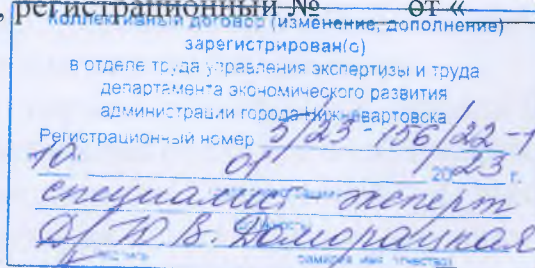 , регистрационный № от «
Коллективный договор (изменение, дополнение)
зарегистрирован(о)
в отделе труда управления экспертизы и труда
департамента экономического развития
администрации города Нижневартовска
Регистрационный номер 5/23-156/22-1
10. 01 2023 г.
специалист эксперт
Ю.В.
фамилия имя отчество)